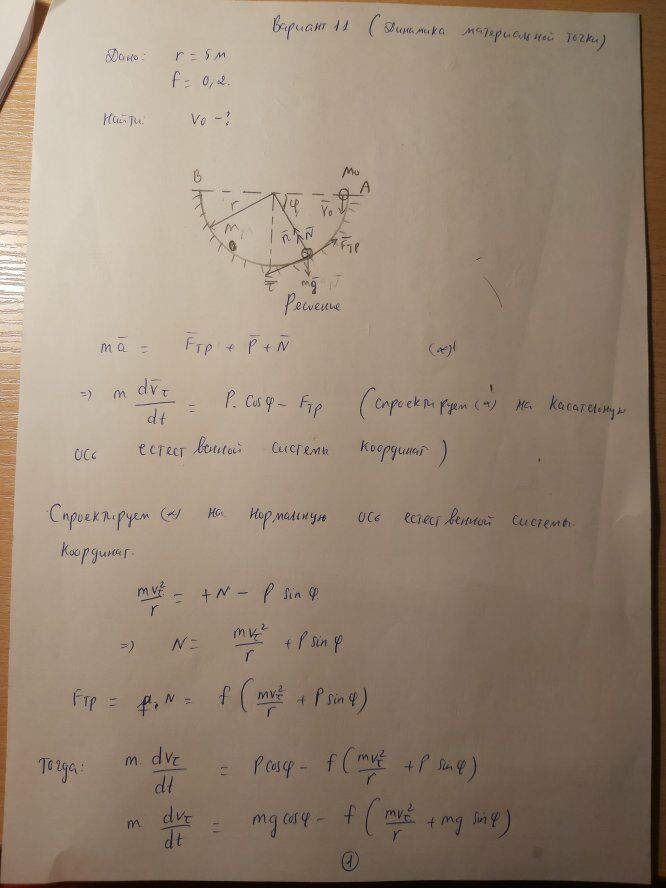 Вариант 11 (Динамика материальной точки)
Дано: r = 5 м
f = 0,2.
Найти: v₀ - ?
B M₀ A
r φ v̄₀
m n̄ N̄ F̄тр
τ̄ mḡ
Решение
mā = F̄тр + P̄ + N̄ (*)
=> m dv̄τ/dt = P. cos φ - Fтр (спроектируем (*) на касательную
ось естественной системы координат)
Спроектируем (*) на нормальную ось естественной системы
координат.
mvτ²/r = + N - P sin φ.
=> N = mvτ²/r + P sin φ
Fтр = f. N = f (mvτ²/r + P sin φ)
Тогда: m. dvτ/dt = P cos φ - f (mvτ²/r + P sin φ)
m dvτ/dt = mg cos φ - f (mvτ²/r + mg sin φ)
1